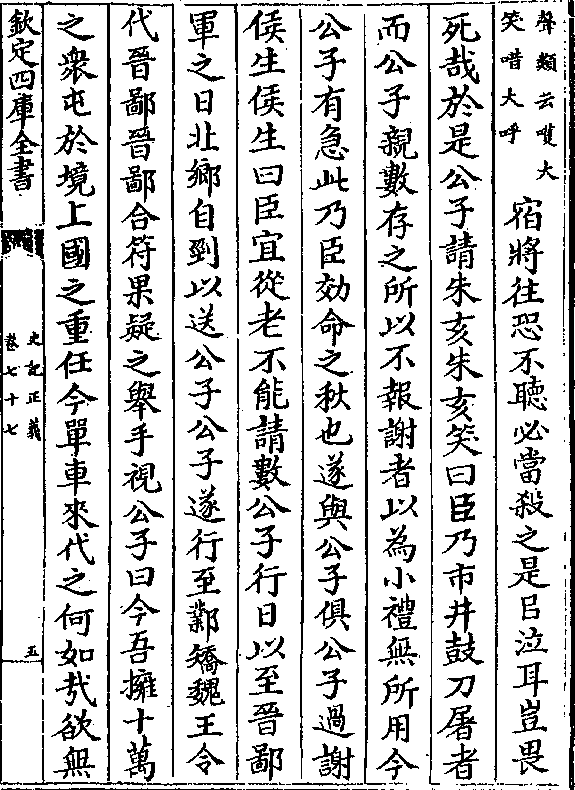 聲類云嘆大
笑唶大呼
宿將往恐不聽必當殺之是㠯泣耳豈畏
死哉於是公子請朱亥朱亥笑曰臣乃市井鼓刀屠者
而公子親數存之所以不報謝者以為小禮無所用今
公子有急此乃臣効命之秋也遂與公子俱公子過謝
侯生侯生曰臣宜從老不能請數公子行日以至晉鄙
軍之日北鄉自剄以送公子公子遂行至鄴矯魏王令
代晉鄙晉鄙合符果疑之舉手視公子曰今吾擁十萬
之衆屯於境上國之重任今單車來代之何如㢤欲無
欽定四庫全書
史記正義
卷七十七
五